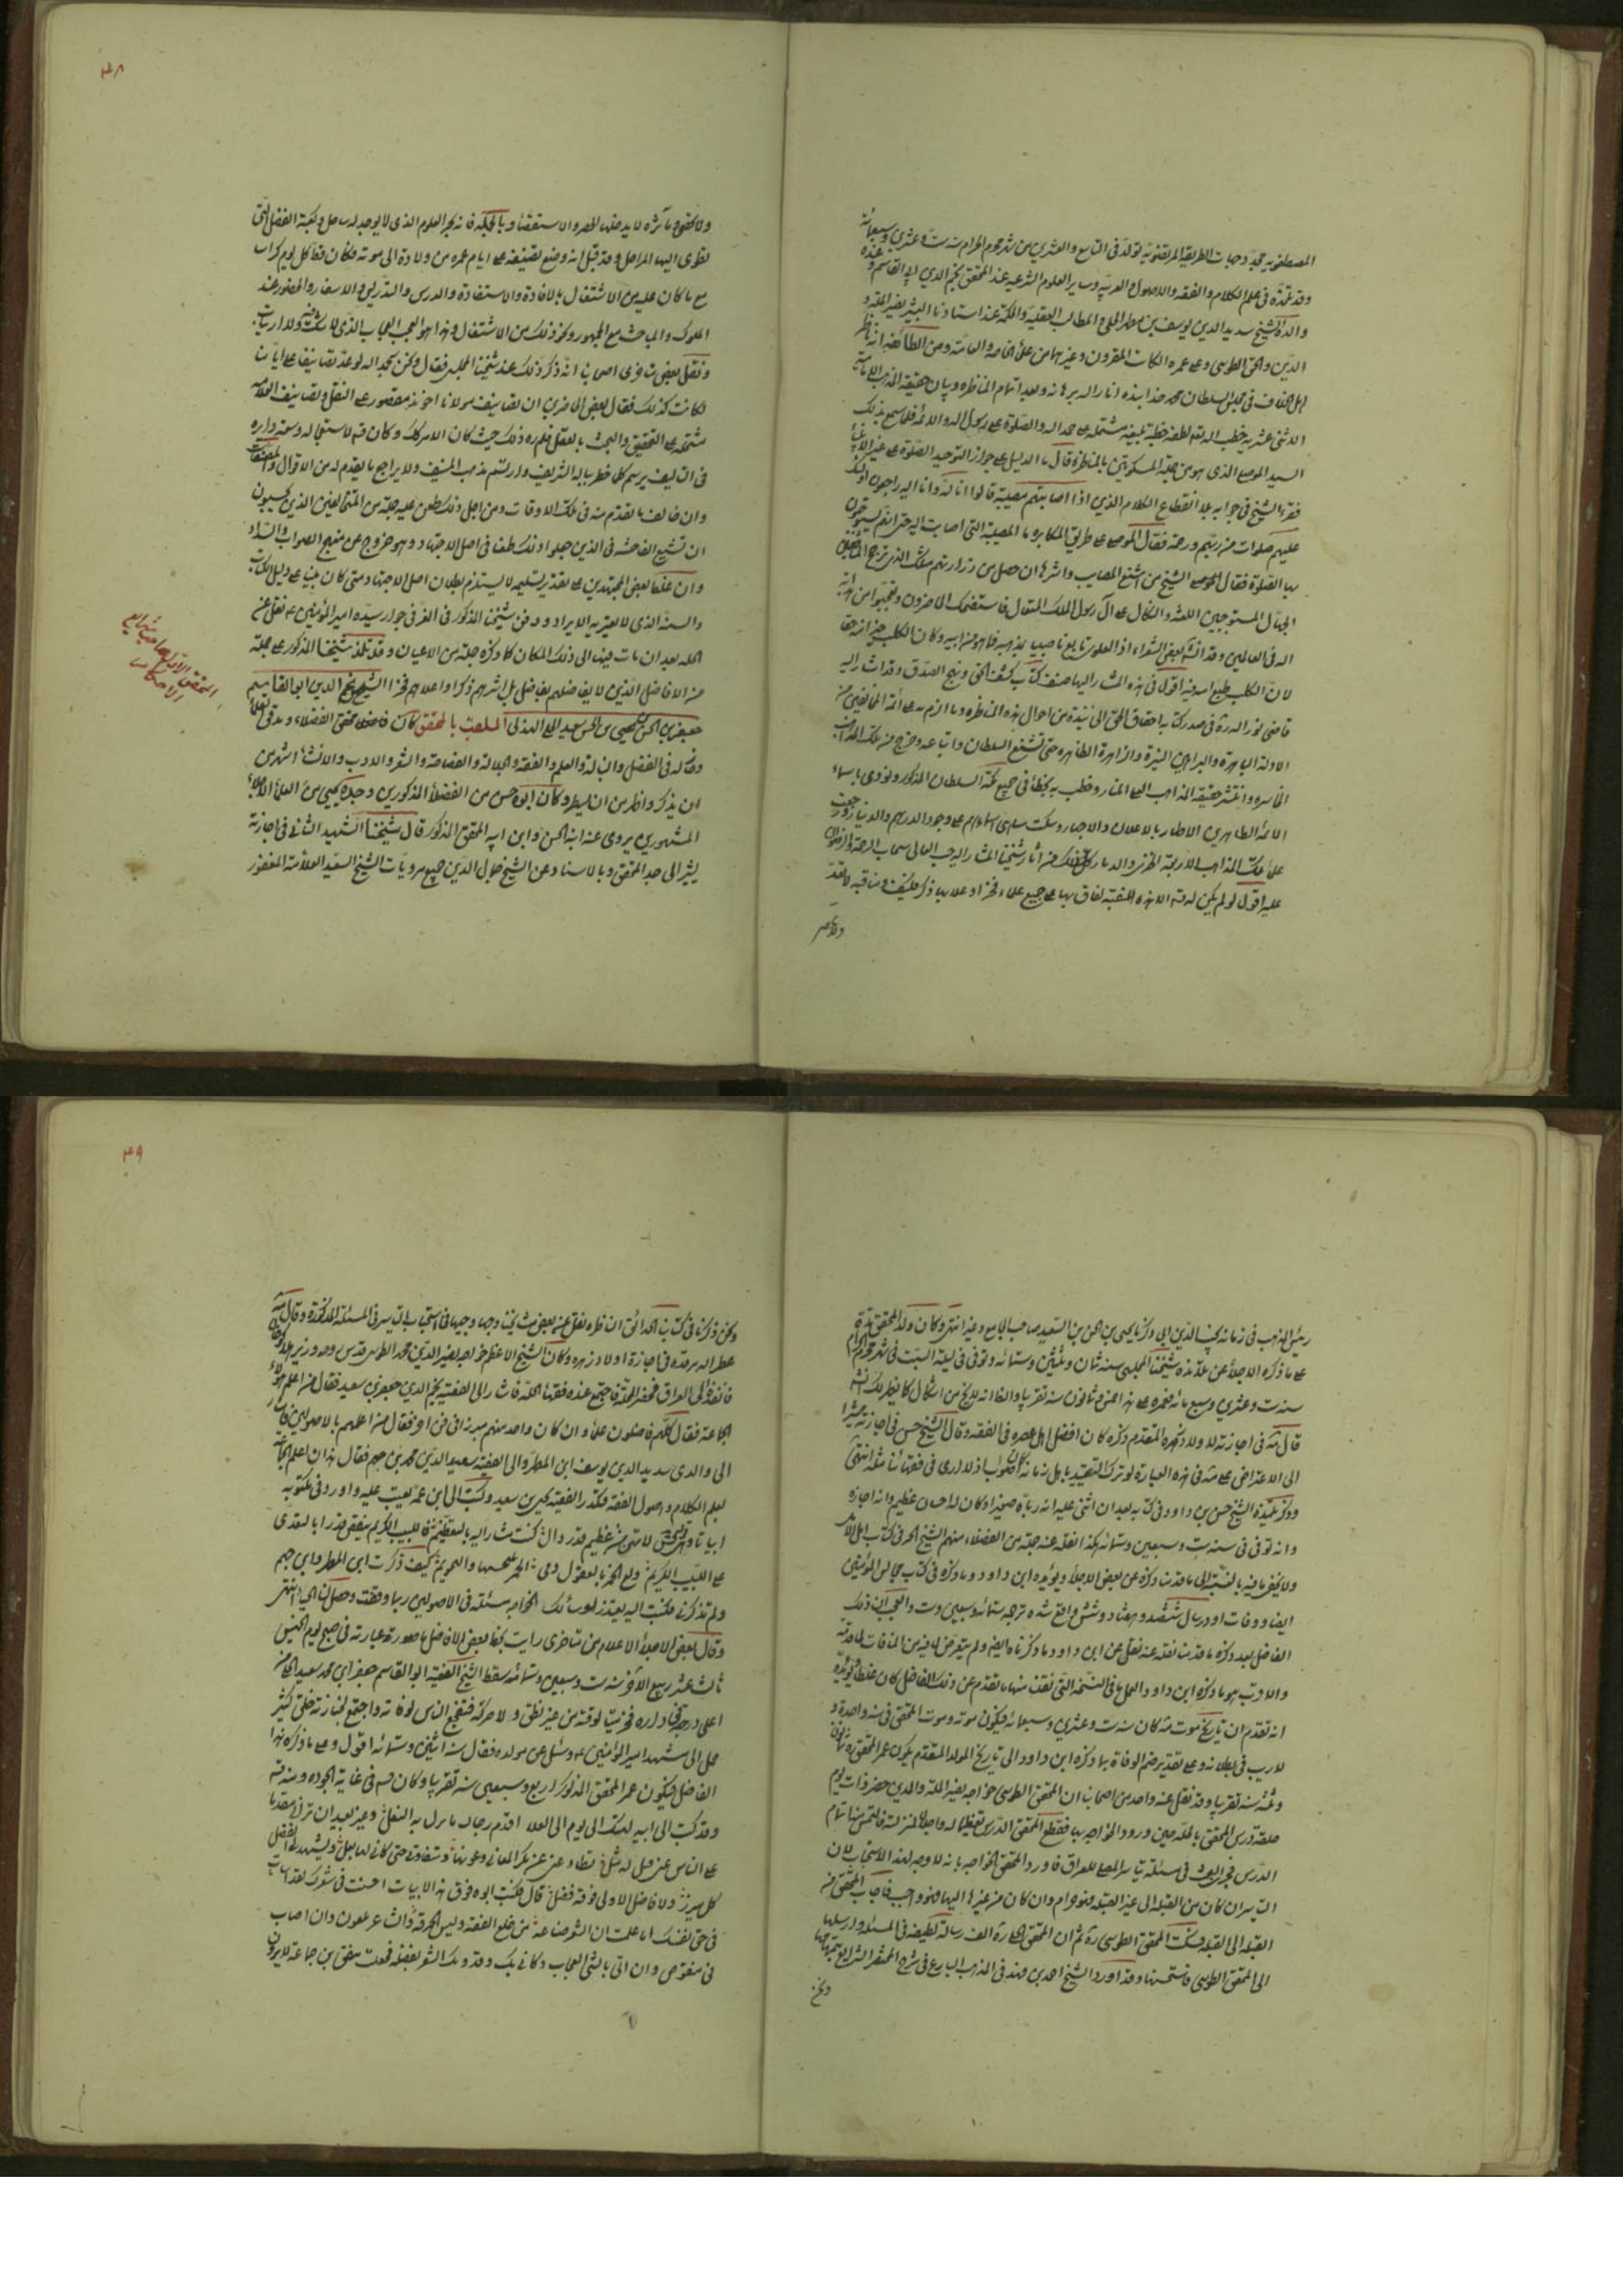 المصطفويه مجدد جهات الطريقة المرتضويه تولد في التاسع والعشرين من شهر محرم الحرام سنة ست وعشرين وسبعمائة
وقد تلمذ في علم الكلام والفقه والاصول والعربيه وساير العلوم الشرعيه عند المحقق نجم الدين ابي القاسم وعند
والده الشيخ سديد الدين يوسف بن مطهر الحلي والمطالب العقليه والحكمة عند استاد البشر نصير الملة و
الدين والحق الطوسي وعلى عمر الكاتب القزويني وغيرهما من علماء الخاصة والعامة ومن الطائف انه ناظر
اهل الخلاف في مجلس السلطان محمد خدابنده انار الله برهانه وبعد اتمام المناظره وبيان حقيقة المذهب الاماميه
الاثني عشريه خطب الله لطفه خطبة بليغة مشتملة على حمد الله والصلوة على رسوله والائمه فلما سمع بذلك
السيد الموصلي الذي هو من جملة المسكوتين بالمناظرة قال ما الدليل على جواز التوحيد الصلوة على غير الانبياء
فقرا الشيخ في جوابه بلا انقطاع الكلام الذين اذا اصابتهم مصيبة قالوا انا لله وانا اليه راجعون اولئك
عليهم صلوات من ربهم ورحمة فقال الموصلي على طريق المكابره ما المصيبة التي اصابت اليه حتى انهم يستوجبون
بها الصلوة فقال الشيخ من اشنع المصايب واشدها ان حصل من ذراريهم مثلك الذي ترجح المنافقين
الجهال المستوجبين اللعنة والنكال على آل رسول الملك المتعال فاستضحك الحاضرون وتعجبوا من بداهة آية
الله في العالمين وقد انشد بعض الشعراء اذا العلوي تابع ناصبيا بمذهبه فما هو من ابيه وكان الكلب خيرا منه حقا
لان الكلب طبع ابيه فيه اقول في هذه المشار اليها صنف كتاب كشف الحق ونهج الصدق وقد اشار اليه
قاضي نور الله ره في صدر كتابه احقاق الحق الى نبذة من احوال هذه المناظره وما الزم به على ائمة المخالفين من
الادلة الباهرة والبراهين النيرة والزاهرة الظاهره حتى تشيع السلطان واتباعه وخرج من تلك المذاهب
الخاسره وانتشر حقيقة المذاهب العلى المنار وخطب به بخطبا في جميع مملكة السلطان المذكور ونودي باسماء
الائمة الطاهرين الاطهار بالاعلان والاجهار وسكت اسامى اسمائهم على وجوه الدراهم والدنيا نير ورجعت
على تلك المذاهب الاربعة الخزي والدمار كل ذلك من آثار شيخنا المشار اليه جلب الله تعالى سحاب الرحمة والرضوان
عليه اقول لو لم يكن له قد الا هذه المنقبة لفاق بها على جميع علماء فخرا وعلا بها ذكره فكيف ومناقبه لا تعد
ولا تحصر
٤٨
ولا تحصى وما آثره لا يدخلها الحصر والاستقصاء وبالجملة فانه بحر العلوم الذي لا يوجد له ساحل وكعبة الفضل التي
تطوى اليها المراحل وقد قيل انه وزع تصنيفه على ايام عمره من ولادة الى موته فكان قسط كل يوم كراسا
مع ما كان عليه من الاشتغال بالافادة والاستفادة والدرس والتدريس والاسفار والحضور عند
الملوك والمباحث مع الجمهور ونحو ذلك من الاشتغال وهذا هو العجب العجاب الذي لا شك فيه ولا ارتياب
ونقل بعض متاخرى اصحابنا انه ذكر ذلك عند شيخنا المجلسي فقال ونحن بحمد الله لو عد تصانيفنا على ايامنا
لكانت كذلك فقال بعض الحاضرين ان تصانيف مولانا اخوند مقصورة على النقل وتصانيف العلامة
مشتملة على التحقيق والبحث بالعقل فسلم ره ذلك حيث كان الامر كذلك وكان قده لاستعجاله وسعة دايره
في التاليف يرسم كلما خطر بباله الشريف وارتسم بذهنه المنيف ولا يراجع ما تقدم له من الاقوال والمصنفات
وان خالف ما تقدم منه في تلك الاوقات ومن اجل ذلك طعن عليه جملة من المتخالفين الذين يحبون
ان تشيع الفاحشة في الذين جعلوا ذلك طعنا في اصل الاجتهاد وهو خروج عن منهج الصواب والسداد
وان غلط بعض المجتهدين على تقدير تسليمه لا يستلزم بطلان اصل الاجتهاد متى كان مبنيا على دليل الكتاب
والسنة الذي لا يعتريه الايراد ودفن شيخنا المذكور في الغري في جوار سيده امير المؤمنين ع نقل من
الحله بعد ان مات فيها الى ذلك المكان كما ذكره جملة من الاعيان وقد تلمذ شيخنا المذكور على جملة
من الافاضل الذين لا يفاضلهم فاضل بل اشهرهم ذكرا واعلاهم فخرا الشيخ نجم الدين ابو القاسم
جعفر بن الحسن بن يحيى بن الحسن بن سعيد الحلي الهذلي الملقب بالمحقق كان فاضلا محقق الفضلاء ومدقق العلماء
وحاله في الفضل والنباله والعلم والفقه والجلالة والفصاحة والشعر والادب والانشاء اشهر من
ان يذكر واظهر من ان يسطر وكان ابوه حسن من الفضلاء المذكورين وجده يحيى من العلماء الاجلاء
المشهورين يروى عنه ابنه الحسن وابن ابيه المحقق المذكور قال شيخنا الشهيد الثاني في اجازته
يشير الى جد المحقق وبالاسناد عن الشيخ جمال الدين جميع مرويات الشيخ السعيد العلامة المغفور
المحقق الاول صاحب شرايع
رئيس المذهب في زمانه نجيب الدين ابي زكريا يحيى بن الحسن بن السعيد صاحب الجامع وغيره انتهى وكان ولد المحقق قده
على ما ذكره الاجلاء عن تلامذة شيخنا المجلسي سنة ثمان وثلثين وستمائه وتوفي في ليلة السبت في شهر محرم الحرام
سنة ست وعشرين وسبع مائه فعمره على هذا المزج ثمانون سنة تقريبا والظا انه لا يخ من اشكال كما يظهر لك انشاء
قال مه في اجازته للاولاد زهره المتقدم ذكره كان افضل اهل عصره في الفقه وقال الشيخ حسن في اجازته مشيرا
الى الاعتراض على مه في هذه العبارة لو ترك التقييد باهل زمانه كان اصوب اذ لا ارى في فقهائنا مثله انتهى
وذكر تلميذه الشيخ حسن بن داود في كتابه بعد ان اثنى عليه انه رباه صغيرا وكان له احسان عظيم وانه اجازه
وانه توفي في سنة ست وسبعين وستمائه هكذا نقله عنه جملة من الفضلاء منهم الشيخ الحر في كتاب امل الامل
ولا يخفى ما فيه بالنسبة الى ما قدمنا ذكره عن بعض الاجلاء ويؤيده ابن داود وما ذكره في كتاب مجالس المؤمنين
ايضا ووفات او در سال ششصد و هفتاد و شش واقع شده ترجمه ستمائه وسبعين وست والعجب ان ذلك
الفاضل بعد ذكره ما قدمنا نقله عنه نقل عن ابن داود ما ذكرناه ايضا ولم يتعرض لما فيه من المنافات لما قدمه
والاقرب هو ما ذكره ابن داود والعمل ما في النسخة التي نقلت منها ما تقدم عن ذلك الفاضل كان غلطا ويؤيده
انه تقدم ان تاريخ موت مه كان سنة ست وعشرين وسبعمائه فيكون موته وموت المحقق في سنه واحدة و
لا ريب في بطلانه وعلى تقدير ضم الوفاة بما ذكره ابن داود الى تاريخ المولد المتقدم يكون عمر المحقق ره ثمان
وثلثون سنة تقريبا وقد نقل عنه واحد من اصحابنا ان المحقق الطوسي خواجه نصير الملة والدين حضر ذات يوم
حلقة درس المحقق بالحله حين ورود الخواجه بها فقطع المحقق الدرس تعظيما له واجلالا لمنزلته فالتمس منه اتمام
الدرس فجرى البحث في مسئلة تياسر المصلى للعراق فاورد المحقق الخواجه بانه لا وجه لهذا الاستحباب لان
التياسر ان كان من القبلة الى غير القبلة فهو حرام وان كان من غيرها اليها فهو واجب فاجاب المحقق من
القبلة الى القبلة فسكت المحقق الطوسي ره ثم ان المحقق الحلي ره الف رسالة لطيفة في المسئلة وارسلها
الى المحقق الطوسي فاستحسنها وقد اورد الشيخ احمد بن فهد في المذهب البارع في شرح المختصر الشرايع بتمامها
ونحن
٤٩
ونحن ذكرنا في كتابنا الحدائق الناظره نقل عنه بعض مشايخنا وجها وجيها في استحباب التياسر في المسئلة المذكورة وقال مه
عطر الله مرقده في اجازة اولاد زهره وكان الشيخ الاعظم خواجه نصير الدين محمد الطوسي قدس وهو وزير هلاكوخان
فانفذ الى العراق فحضر الحلة فاجتمع عنده فقهاء الحلة فاشار الى الفقيه نجم الدين جعفر بن سعيد فقال من اعلم هؤلاء
الجماعة فقال كلهم فاضلون علماء وان كان واحد منهم مبرزا في فن اخر فقال من اعلمهم بالاصولين فاشار
الى والدي سديد الدين يوسف ابن المطهر والى الفقيه سعيد الدين محمد بن جهم فقال هذان اعلم الجماعة
بعلم الكلام واصول الفقه فتكدر الفقيه يحيى بن سعيد وكتب الى ابن عمه يعتب عليه واورد في مكتوبه
ابياتا وهي لا تهن من عظيم قدر وان كنت مشارا اليه بالتعظيم فاللبيب الكريم ينقص قدرا بالتعدى
على اللبيب الكريم ولع الخمر بالعقول رمى الخمر بتنجيسها والتحريم كيف ذكرت ابن المطهر وابن جهم
ولم تذكرني فكتب اليه يعتذر لو سألك الخواجه مسئلة في الاصولين ربما وقفت وحصل لنا الحياء انتهى
وقال بعض الاجلاء الاعلام من متاخرى رايت بخط بعض الافاضل ما صورة عبارته في صبح يوم الخميس
ثالث عشر ربيع الاخر سنة ست وسبعين وستمائه سقط الشيخ الفقيه ابو القاسم جعفر ابن محمد سعيد الحلي من
اعلى درجة في داره فخر ميتا لوقته من غير نطق ولا حركة فتفجع الناس لوفاته واجتمع لجنازته خلق كثير
حمل الى مشهد امير المؤمنين ع وسئل عن مولده فقال سنة اثنين وستمائه اقول وعلى ما ذكره هذا
الفاضل فيكون عمر المحقق المذكور اربع وسبعين سنة تقريبا وكان قده في غاية الجوده ومنه قده
وقد كتب الى ابيه ليهنك انى كل يوم الى العلا اقدم رجلا ما تزل بها النعل وغير بعيد ان ترانى مقدما
على الناس عن قيل له مثل تطاوعنى بكر المعانى وعونها وتنقاد حتى كانى لها بعل ويشهد لى بالفضل
كل مبرز ولا فاضل الا ولى فوقه فضل قال فكتب ابوه فوق هذا الابيات احسنت في شعرك لقد اسات
في حق نفسك اما علمت ان الشعر صناعة من خلع الفقه ولبس الحرفة والشاعر ملعون وان اصاب
ومنقوص وان اتى بالشئ العجاب وكانى بك وقد وهك الشعر بفضله فجعلت تنفق بين جماعة لا يرون